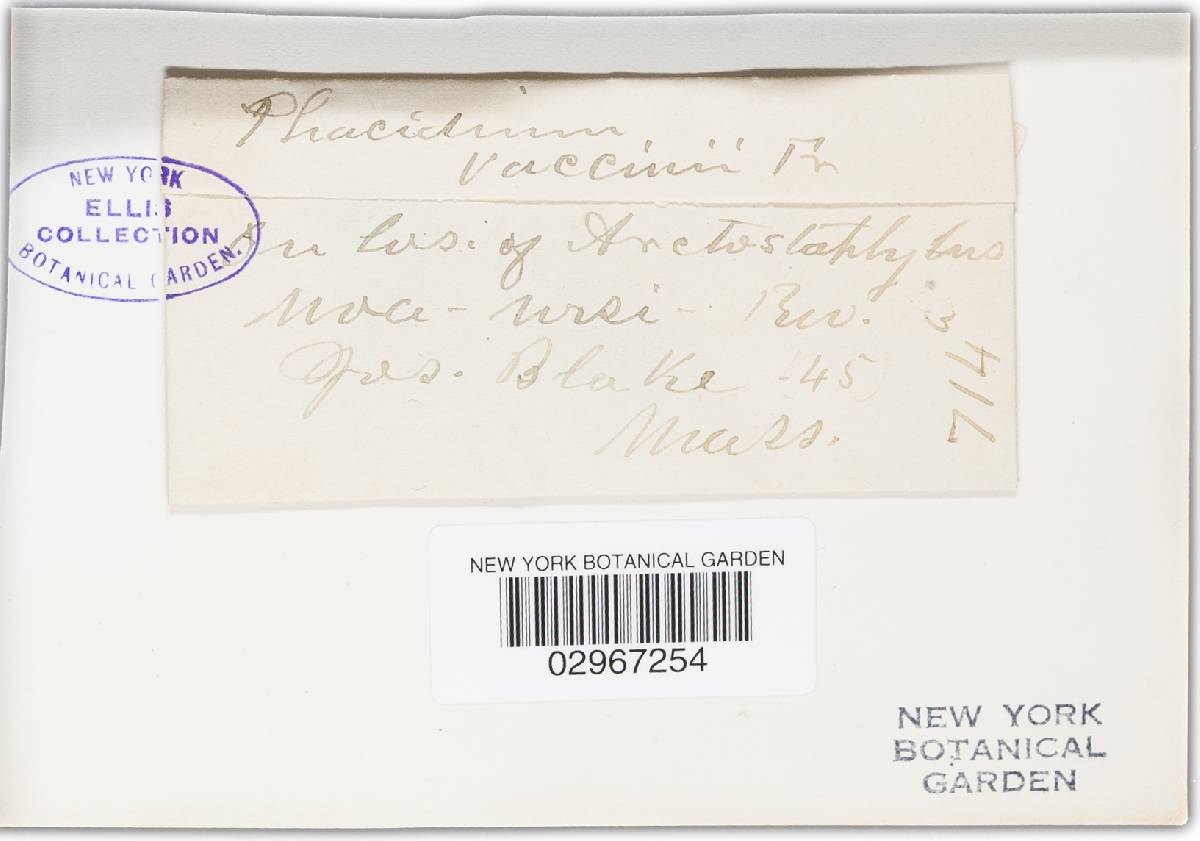 Phacidium
Vaccinii Fr
NEW YORK
ELLIS
COLLECTION
BOTANICAL GARDEN.
On lvs. of Arctostaphylus
uva-ursi - Rev.
Jos. Blake (45)
Mass.
3
714
NEW YORK BOTANICAL GARDEN
02967254
NEW YORK
BOTANICAL
GARDEN